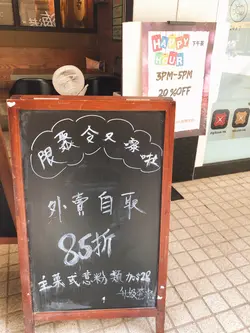 HAPPY HOUR 下午茶
3PM-5PM
20%OFF
限聚令又嚟啦
外賣自取
85折
主菜式意粉類加$28